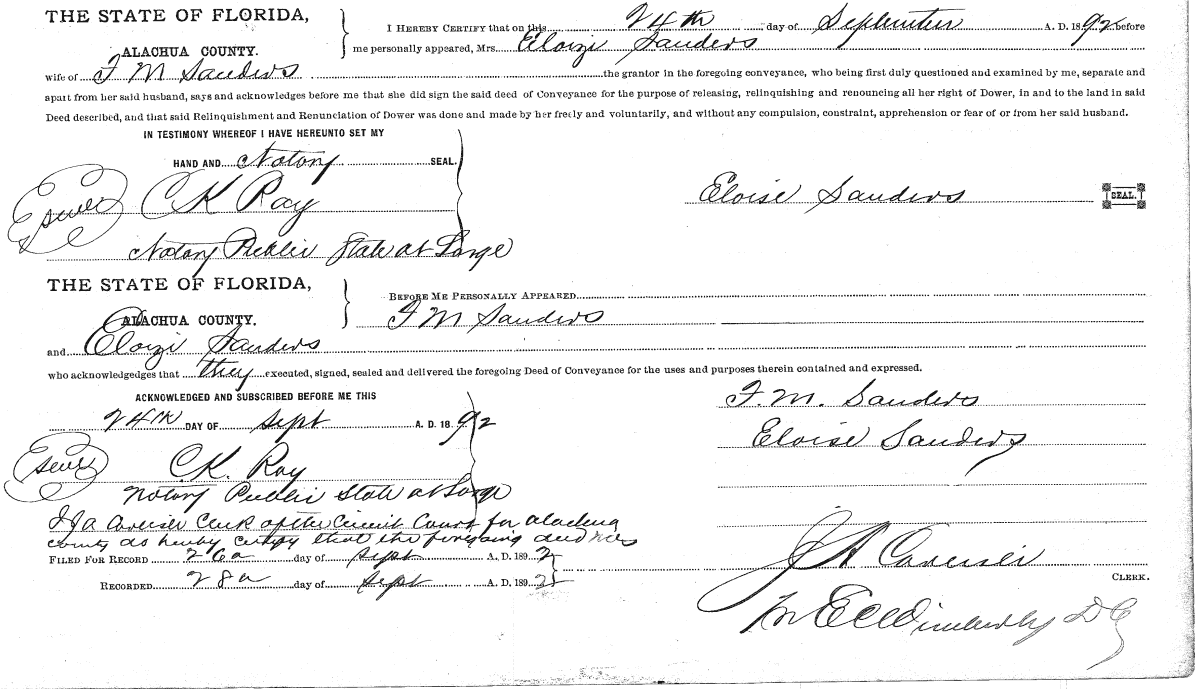 THE STATE OF FLORIDA,
ALACHUA COUNTY.
I HEREBY CERTIFY that on this 24th day of September A. D. 1892 before
me personally appeared, Mrs. Eloizi Sanders
wife of F M Sanders the grantor in the foregoing conveyance, who being first duly questioned and examined by me, separate and
apart from her said husband, says and acknowledges before me that she did sign the said deed of Conveyance for the purpose of releasing, relinquishing and renouncing all her right of Dower, in and to the land in said
Deed described, and that said Relinquishment and Renunciation of Dower was done and made by her freely and voluntarily, and without any compulsion, constraint, apprehension or fear of or from her said husband.
IN TESTIMONY WHEREOF I HAVE HEREUNTO SET MY
HAND AND Notory SEAL.
C K Ray
Eloise Sanders SEAL.
Notory Public State at Large
THE STATE OF FLORIDA,
ALACHUA COUNTY.
BEFORE ME PERSONALLY APPEARED
F M Sanders
and Eloizi Sanders
who acknowledgedges that they executed, signed, sealed and delivered the foregoing Deed of Conveyance for the uses and purposes therein contained and expressed.
ACKNOWLEDGED AND SUBSCRIBED BEFORE ME THIS
24th DAY OF Sept A. D. 1892
F. M. Sanders
Eloise Sanders
C. K. Ray
Notory Public State at Large
I J A Clerk of the Circuit Court for Alachua
county do hereby certify that the foregoing deed was
FILED FOR RECORD 26 day of Sept A. D. 1892
RECORDED 28 day of Sept A. D. 1892
J A
CLERK.
E C Wimberly D C